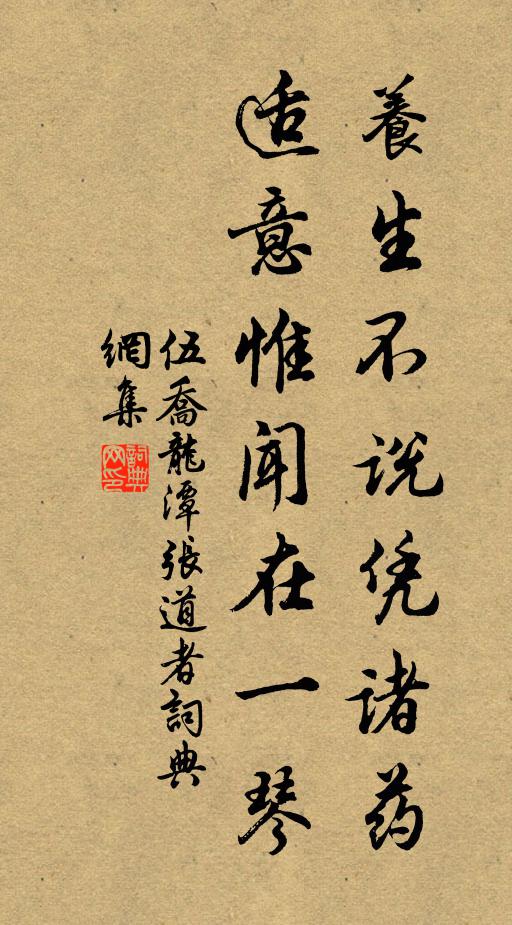 養生不说凭诸药
适意惟闻在一琴
伍喬龍潭張道者詞典
網集
詞典
网印